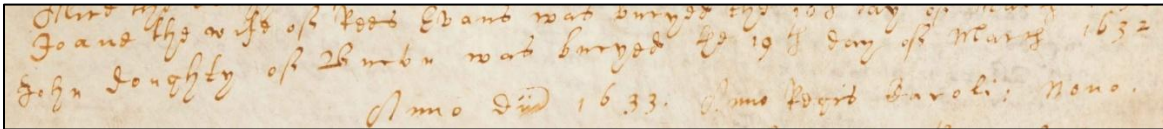 Joane the wife of Rees Evans was buryed the 18th day of March
John Doughty of was buryed the 19th day of March 1632
Anno dñi 1633. Anno Regis Caroli: Nono.